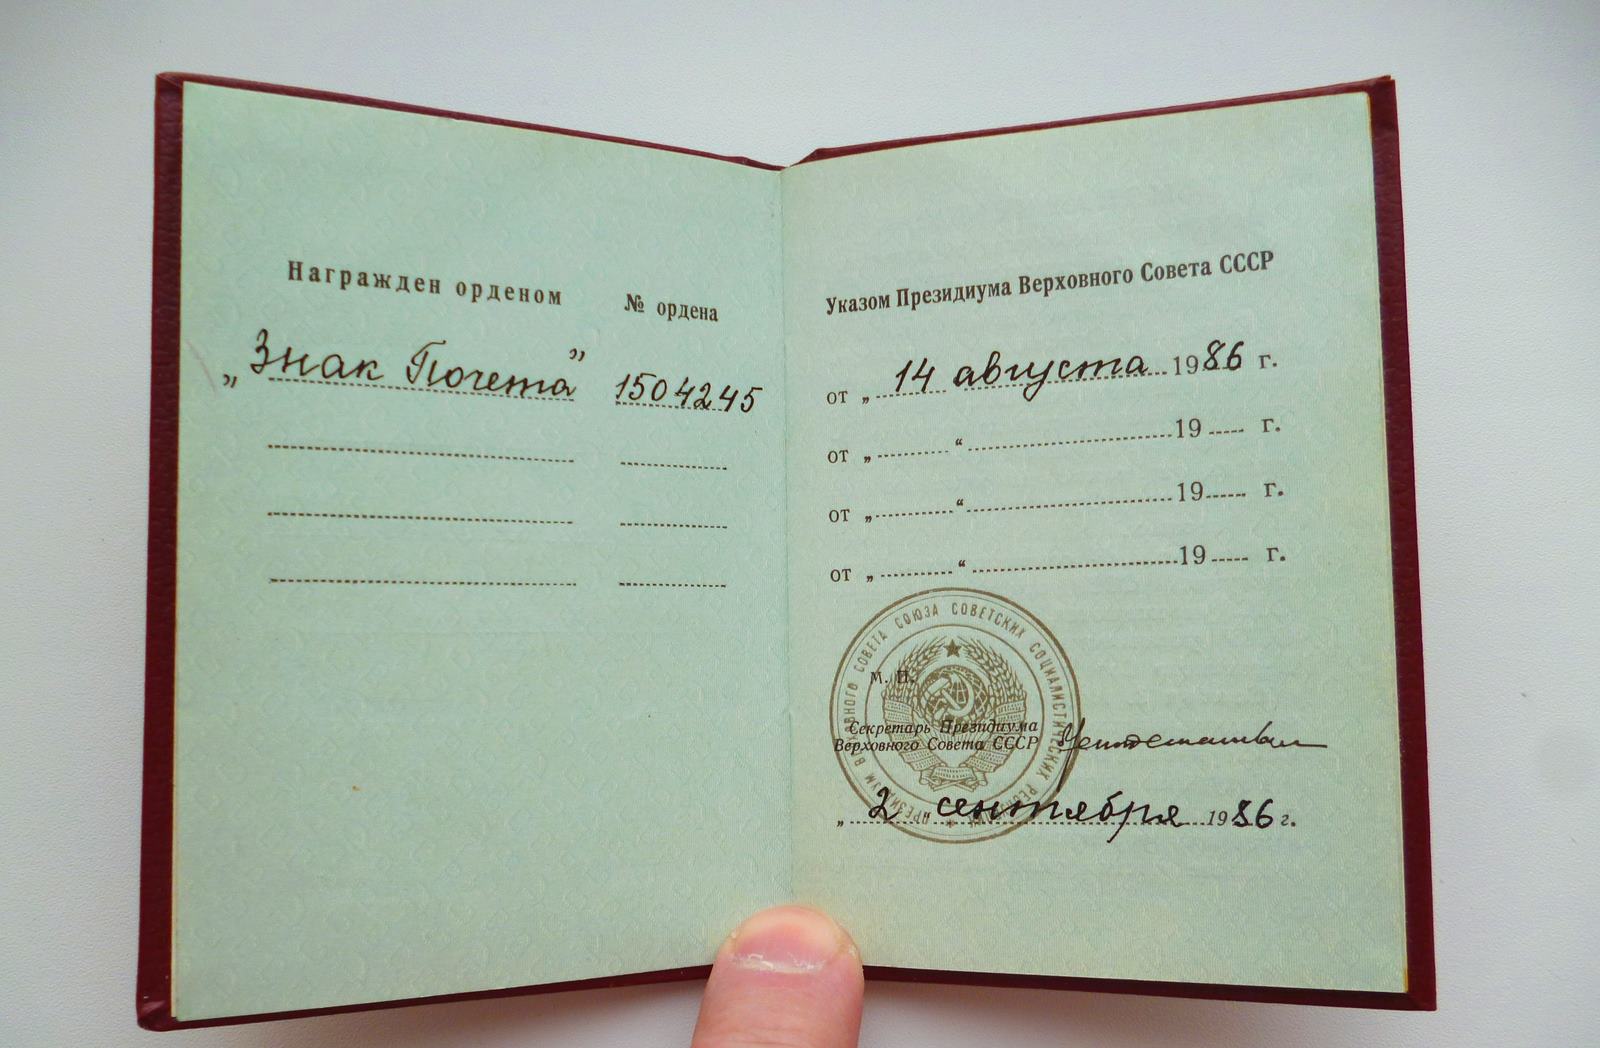 Награжден орденом № ордена
„Знак Почета” 1504245
Указом Президиума Верховного Совета СССР
от „ 14 августа 1986 г.
от „ “ 19 г.
от „ “ 19 г.
от „ “ 19 г.
ПРЕЗИДИУМ ВЕРХОВНОГО СОВЕТА СОЮЗА СОВЕТСКИХ СОЦИАЛИСТИЧЕСКИХ РЕСПУБЛИК
М. П.
Секретарь Президиума
Верховного Совета СССР
„ 2 “ сентября 1986 г.